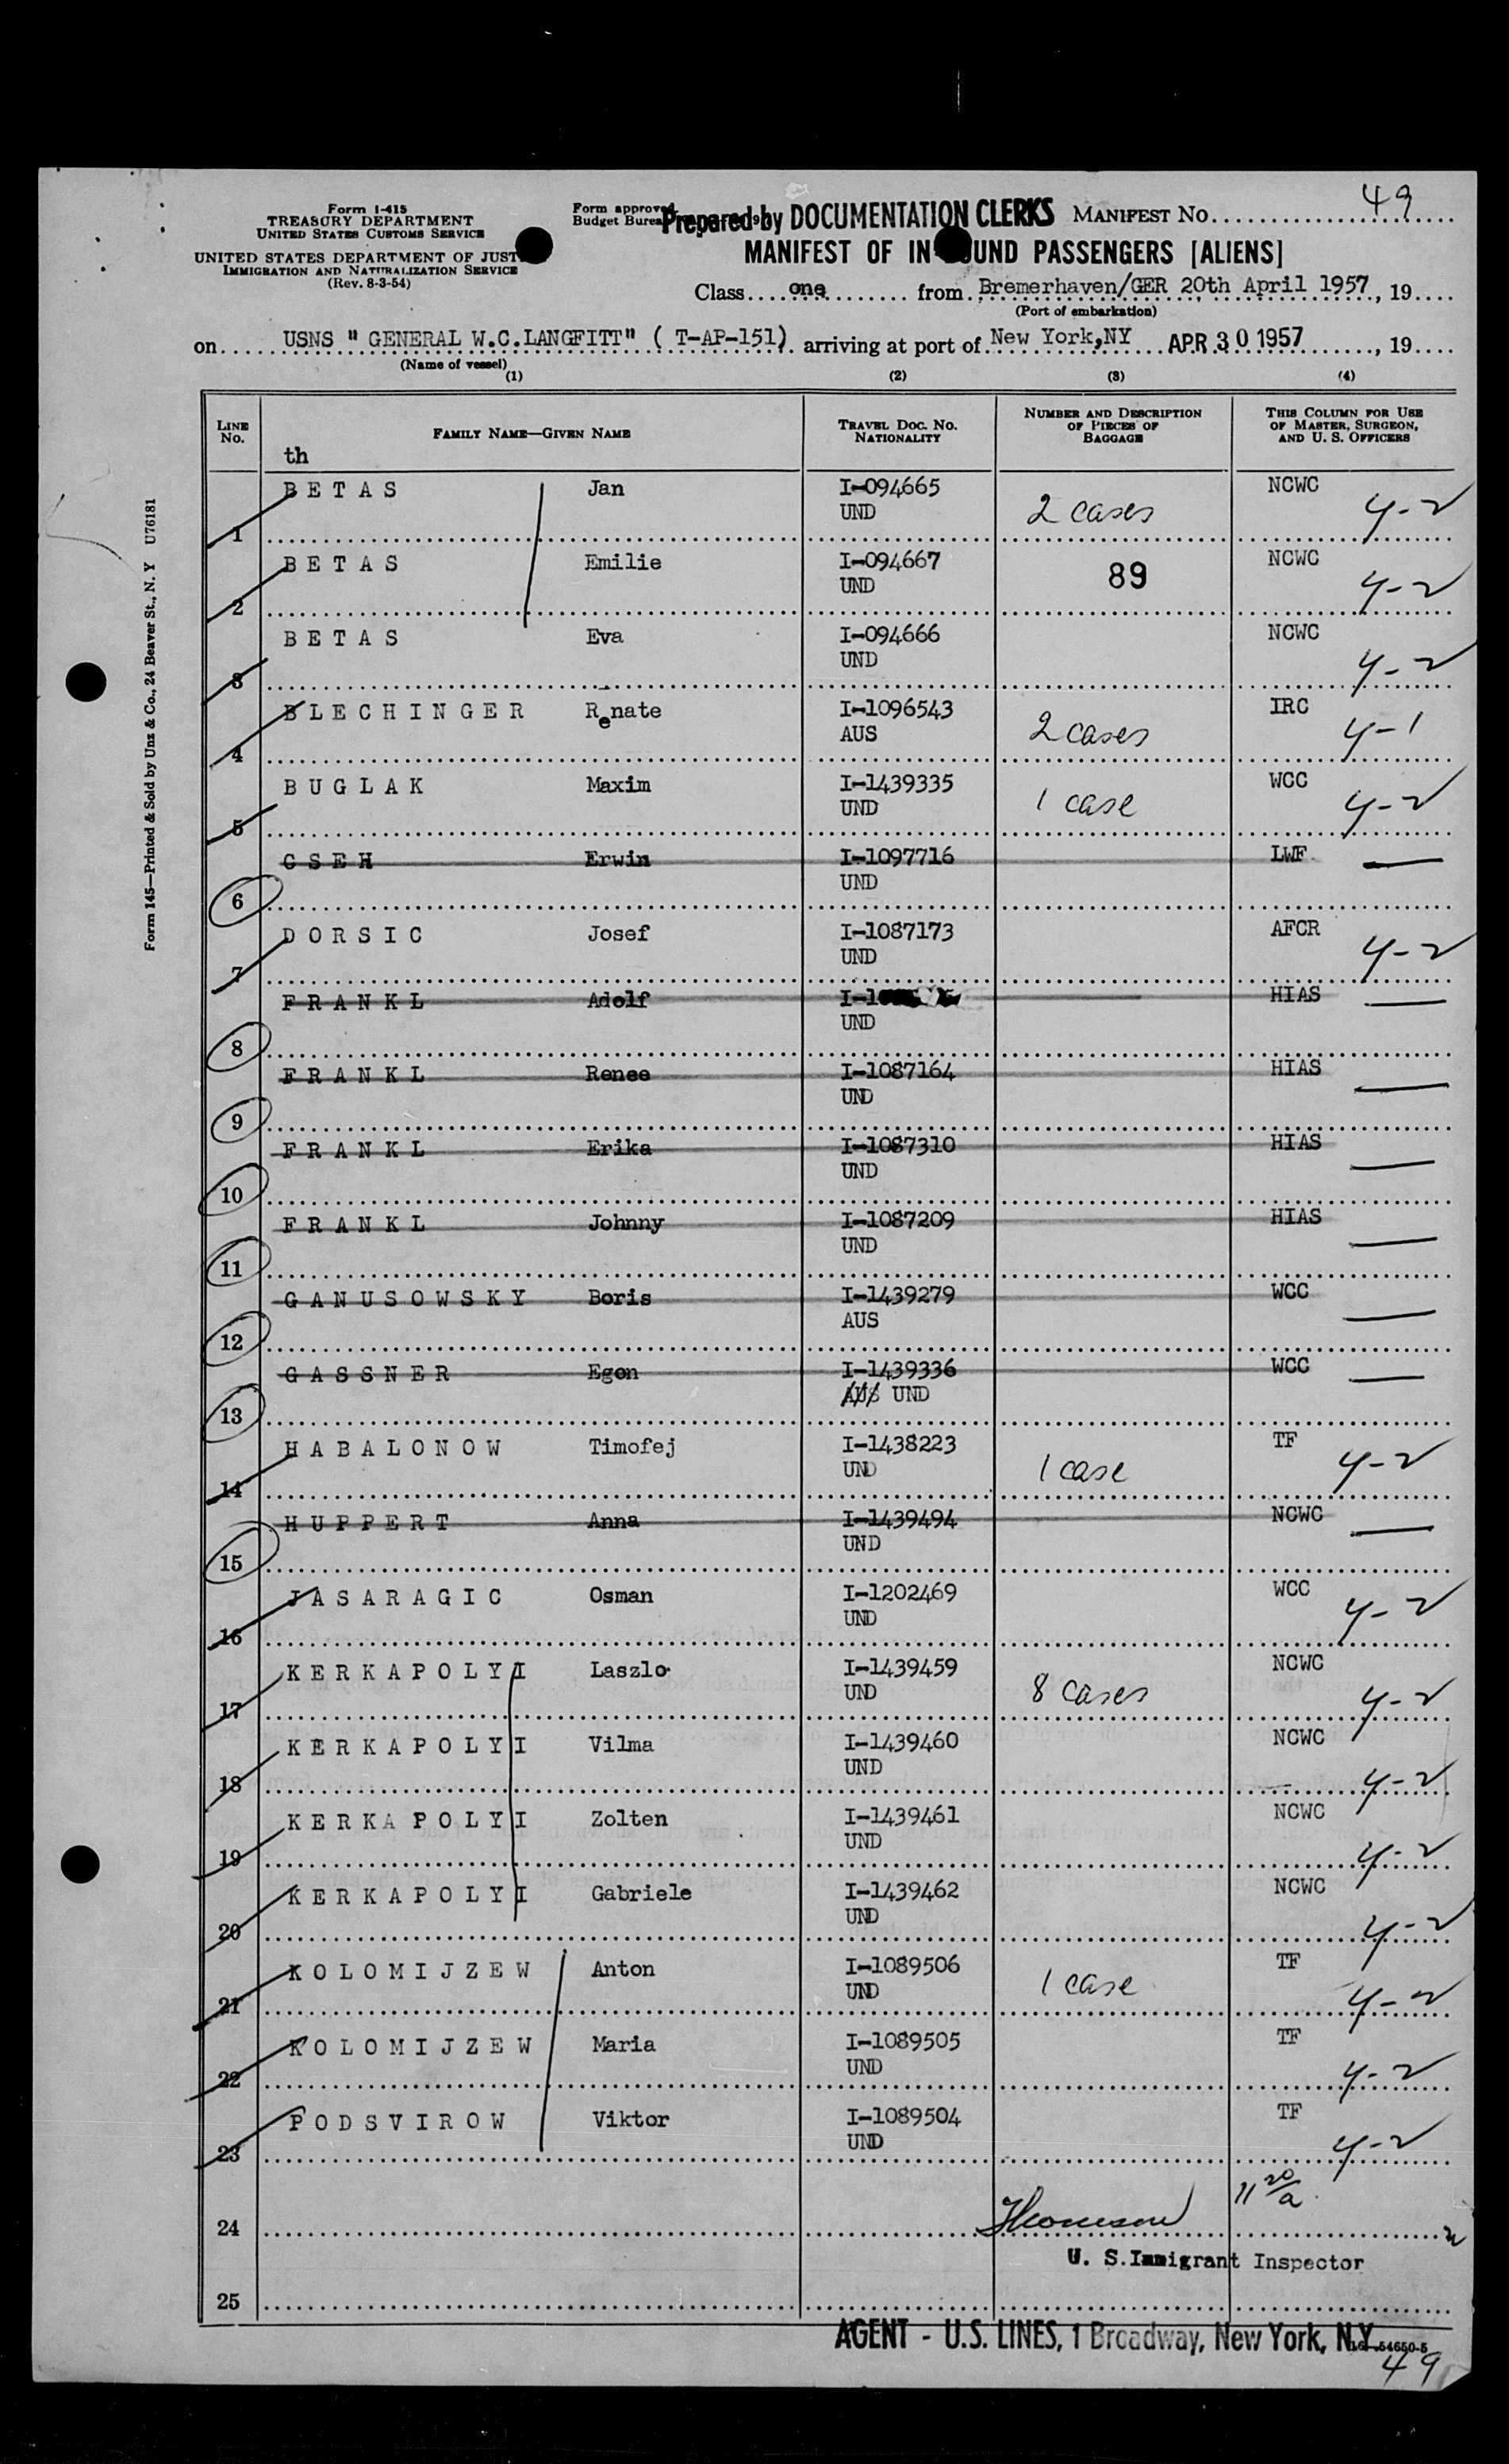 49
Form I-415
TREASURY DEPARTMENT
UNITED STATES CUSTOMS SERVICE
UNITED STATES DEPARTMENT OF JUST
IMMIGRATION AND NATURALIZATION SERVICE
(Rev. 8-3-54)
Form approved
Budget Burea
Prepared by DOCUMENTATION CLERKS
MANIFEST NO.
MANIFEST OF IN UND PASSENGERS [ALIENS]
Class one from Bremerhaven/GER 20th April 1957, 19
(Port of embarkation)
on USNS " GENERAL W.C.LANGFITT" ( T-AP-151) arriving at port of New York,NY APR 30 1957, 19
(Name of vessel)
(1) (2) (3) (4)
LINE No. FAMILY NAME—GIVEN NAME TRAVEL DOC. NO. NATIONALITY NUMBER AND DESCRIPTION OF PIECES OF BAGGAGE THIS COLUMN FOR USE OF MASTER, SURGEON, AND U. S. OFFICERS
th
1 BETAS Jan I-094665 UND 2 cases NCWC 4-2
2 BETAS Emilie I-094667 UND 89 NCWC 4-2
3 BETAS Eva I-094666 UND NCWC 4-2
4 BLECHINGER Renate I-1096543 AUS 2 cases IRC 4-1
5 BUGLAK Maxim I-1439335 UND 1 case WCC 4-2
6 CSEH Erwin I-1097716 UND LWF
7 DORSIC Josef I-1087173 UND AFCR 4-2
8 FRANKL Adolf I-1 UND HIAS
9 FRANKL Renee I-1087164 UND HIAS
10 FRANKL Erika I-1087310 UND HIAS
11 FRANKL Johnny I-1087209 UND HIAS
12 GANUSOWSKY Boris I-1439279 AUS WCC
13 GASSNER Egon I-1439336 AUS UND WCC
14 HABALONOW Timofej I-1438223 UND 1 case TF 4-2
15 HUPPERT Anna I-1439494 UND NCWC
16 JASARAGIC Osman I-1202469 UND WCC 4-2
17 KERKAPOLYI Laszlo I-1439459 UND 8 cases NCWC 4-2
18 KERKAPOLYI Vilma I-1439460 UND NCWC 4-2
19 KERKAPOLYI Zolten I-1439461 UND NCWC 4-2
20 KERKAPOLYI Gabriele I-1439462 UND NCWC 4-2
21 KOLOMIJZEW Anton I-1089506 UND 1 case TF 4-2
22 KOLOMIJZEW Maria I-1089505 UND TF 4-2
23 PODSVIROW Viktor I-1089504 UND TF 4-2
24 Thomson 11 20/a
U. S. Immigrant Inspector
25
AGENT - U.S. LINES, 1 Broadway, New York, N.Y.
16-54650-5
49
Form 145—Printed & Sold by Unz & Co., 24 Beaver St., N. Y U76181